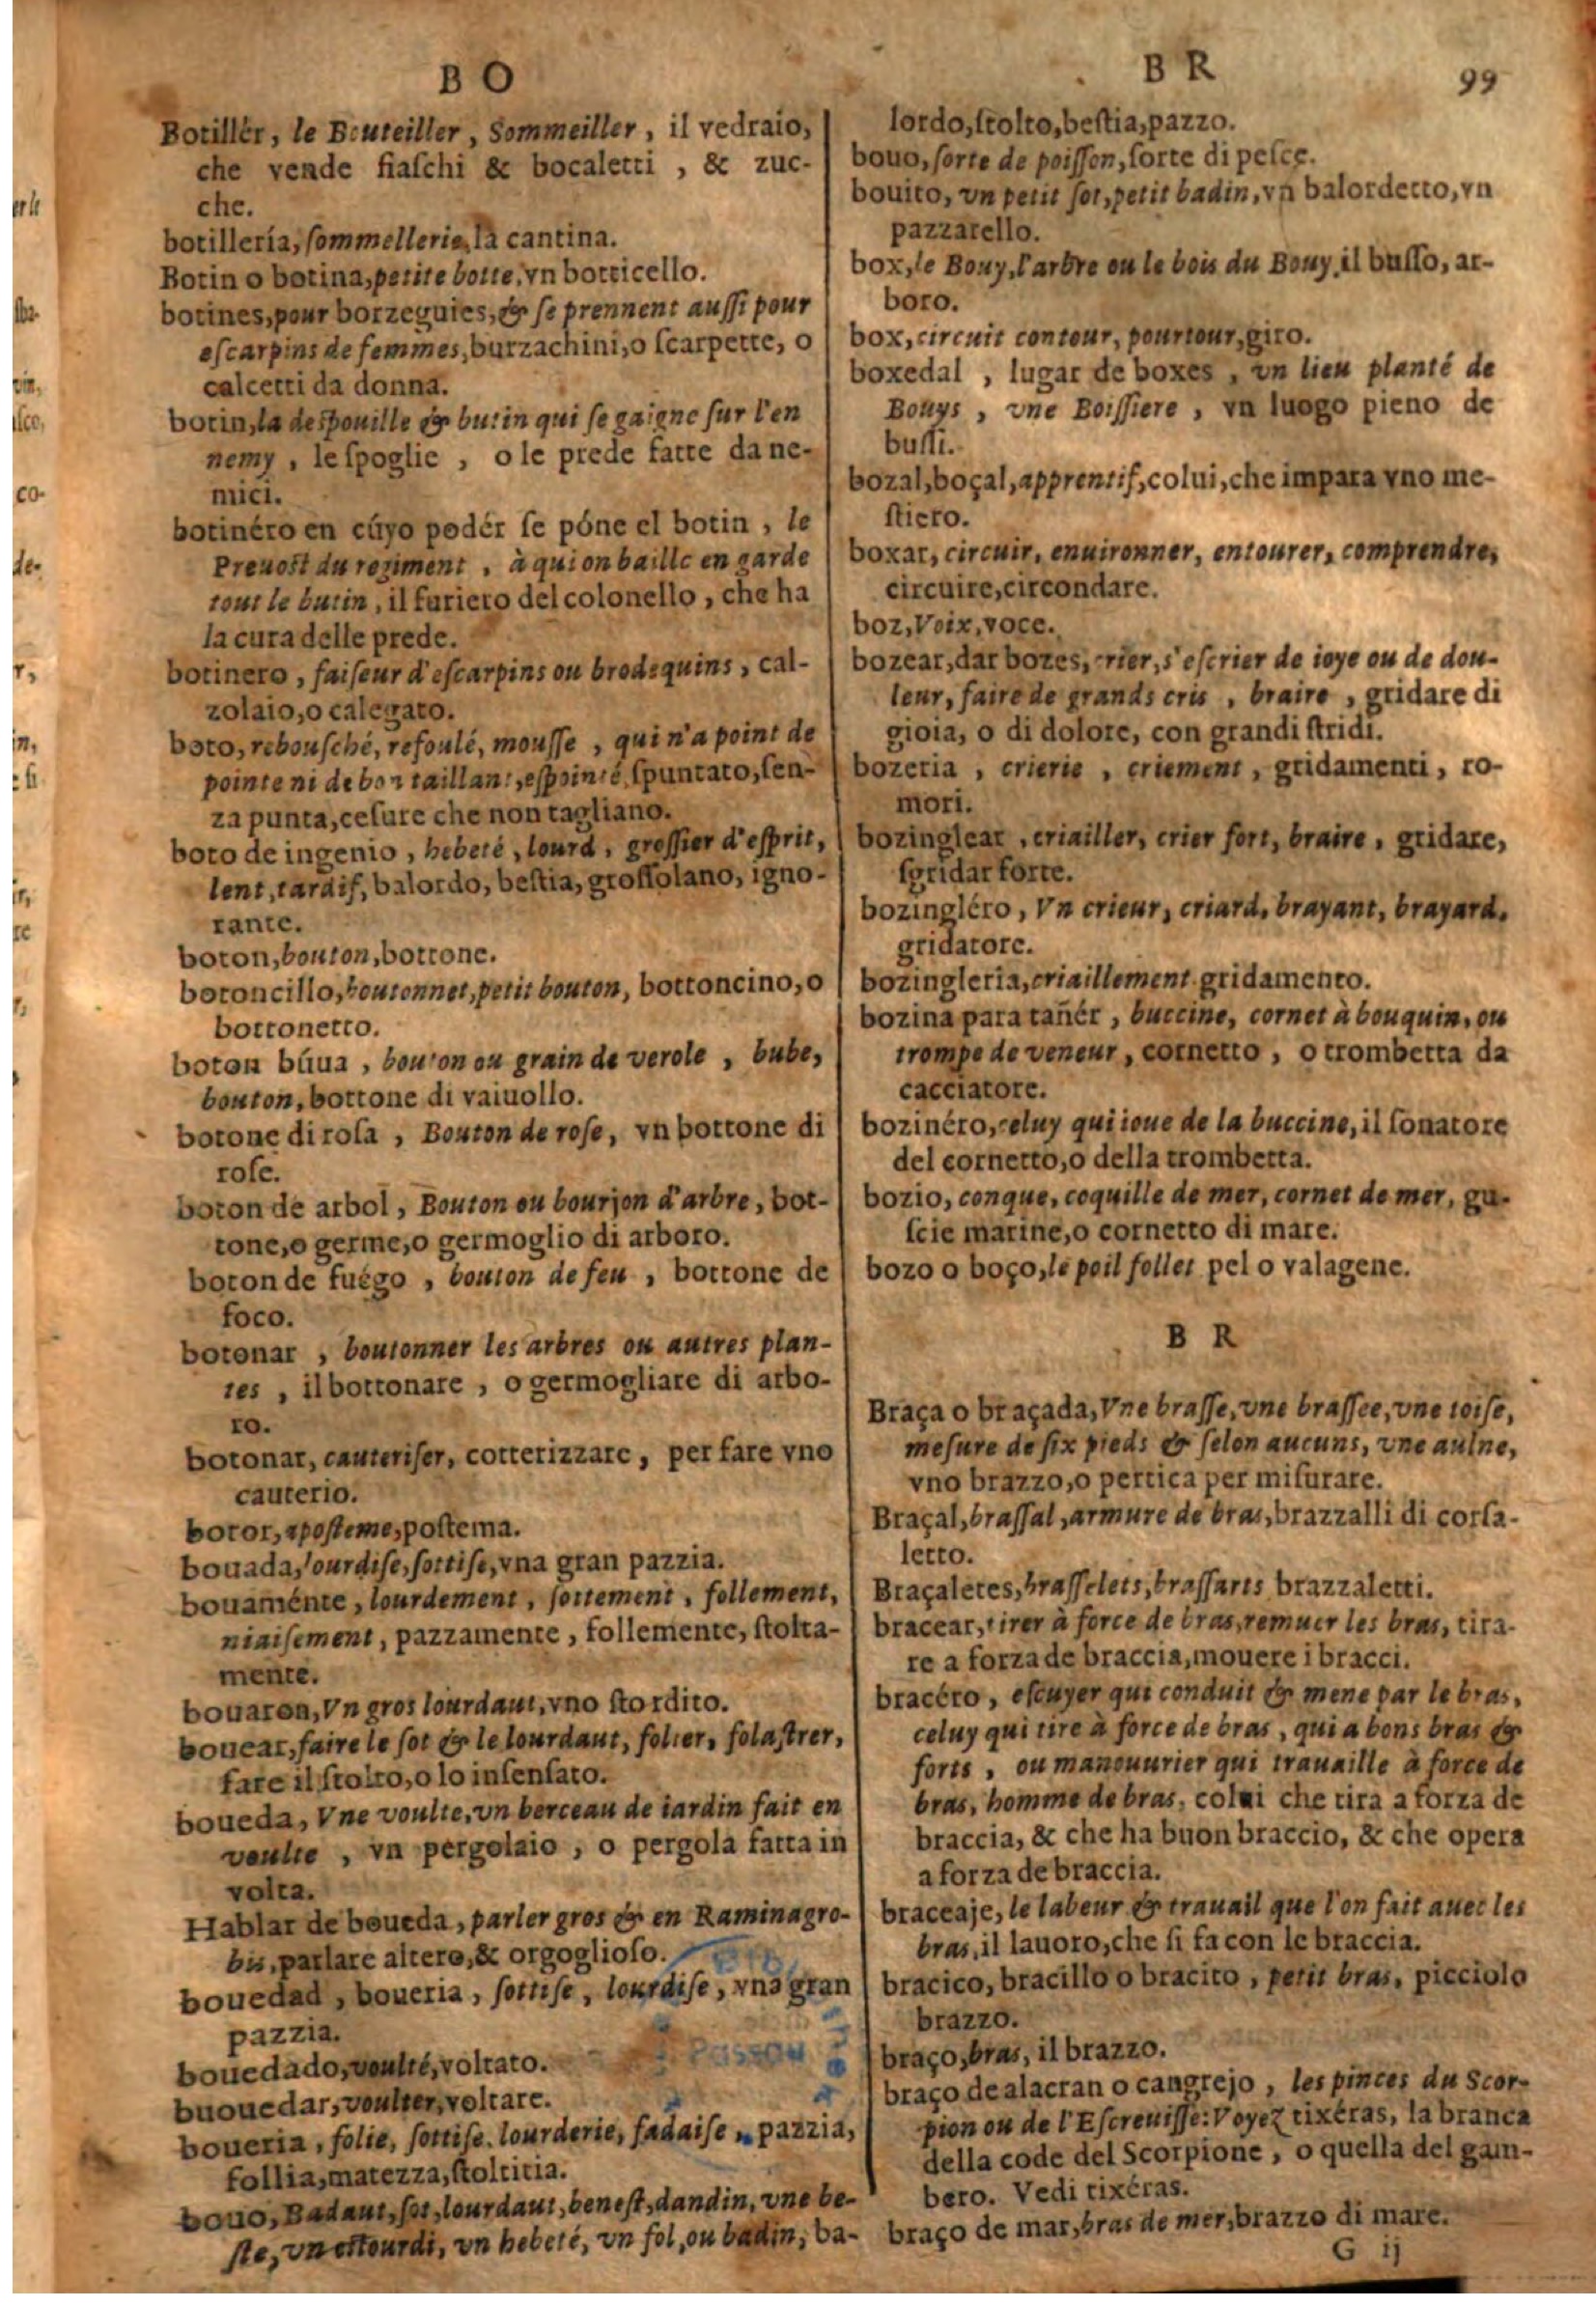 B O
Botillér, le Bouteiller, Sommeiller, il vedraio,
che vende fiaſchi & bocaletti, & zuc-
che.
botillería, ſommellerie, la cantina.
Botin o botina, petite botte, vn botticello.
botines, pour borzeguies, & ſe prennent auſſi pour
eſcarpins de femmes, burzachini, o ſcarpette, o
calcetti da donna.
botin, la deſpouille & butin qui ſe gaigne ſur l'en
nemy, le ſpoglie, o le prede fatte da ne-
mici.
botinéro en cúyo podér ſe póne el botin, le
Preuoſt du regiment, à qui on baille en garde
tout le butin, il furiero del colonello, che ha
la cura delle prede.
botinero, faiſeur d'eſcarpins ou brodequins, cal-
zolaio, o calegaro.
boto, rebouſché, refoulé, mouſſe, qui n'a point de
pointe ni de bon taillant, eſpointé, ſpuntato, ſen-
za punta, ceſure che non tagliano.
boto de ingenio, hebeté, lourd, groſſier d'eſprit,
lent, tardif, balordo, beſtia, groſſolano, igno-
rante.
boton, bouton, bottone.
botoncillo, boutonnet, petit bouton, bottoncino, o
bottonetto.
boton búua, bouton ou grain de verole, bube,
bouton, bottone di vaiuollo.
botone di roſa, Bouton de roſe, vn bottone di
roſe.
boton de arbol, Bouton ou bourjon d'arbre, bot-
tone, o germe, o germoglio di arboro.
boton de fuégo, bouton de feu, bottone de
foco.
botonar, boutonner les arbres ou autres plan-
tes, il bottonare, o germogliare di arbo-
ro.
botonar, cauteriſer, cotterizzare, per fare vno
cauterio.
botor, apoſteme, poſtema.
bouada, lourdiſe, ſottiſe, vna gran pazzia.
bouaménte, lourdement, ſottement, follement,
niaiſement, pazzamente, follemente, ſtolta-
mente.
bouaron, Vn gros lourdaut, vno ſtordito.
bouear, faire le ſot & le lourdaut, folier, folaſtrer,
fare il ſtolto, o lo inſenſato.
boueda, Vne voulte, vn berceau de iardin fait en
voulte, vn pergolaio, o pergola fatta in
volta.
Hablar de boueda, parler gros & en Raminagro-
bis, parlare altero, & orgoglioſo.
bouedad, boueria, ſottiſe, lourdiſe, vna gran
pazzia.
bouedado, voulté, voltato.
buouedar, voulter, voltare.
boueria, folie, ſottiſe, lourderie, fadaiſe, pazzia,
follia, matezza, ſtoltitia.
bouo, Badaut, ſot, lourdaut, beneſt, dandin, vne be-
ſte, vn eſtourdi, vn hebeté, vn fol, ou badin, ba-
B R
99
lordo, ſtolto, beſtia, pazzo.
bouo, ſorte de poiſſon, ſorte di peſce.
bouito, vn petit ſot, petit badin, vn balordetto, vn
pazzarello.
box, le Bouy, l'arbre ou le bois du Bouy, il buſſo, ar-
boro.
box, circuit contour, pourtour, giro.
boxedal, lugar de boxes, vn lieu planté de
Bouys, vne Boiſſiere, vn luogo pieno de
buſſi.
bozal, boçal, apprentif, colui, che impara vno me-
ſtiero.
boxar, circuir, enuironner, entourer, comprendre,
circuire, circondare.
boz, Voix, voce.
bozear, dar bozes, crier, s'eſcrier de ioye ou de dou-
leur, faire de grands cris, braire, gridare di
gioia, o di dolore, con grandi ſtridi.
bozeria, crierie, criement, gridamenti, ro-
mori.
bozinglear, criailler, crier fort, braire, gridare,
ſgridar forte.
bozingléro, Vn crieur, criard, brayant, brayard,
gridatore.
bozingleria, criaillement gridamento.
bozina para tañér, buccine, cornet à bouquin, ou
trompe de veneur, cornetto, o trombetta da
cacciatore.
bozinéro, celuy qui ioue de la buccine, il ſonatore
del cornetto, o della trombetta.
bozio, conque, coquille de mer, cornet de mer, gu-
ſcie marine, o cornetto di mare.
bozo o boço, le poil follet pel o valagene.
B R
Braça o braçada, Vne braſſe, vne braſſee, vne toiſe,
meſure de ſix pieds & ſelon aucuns, vne aulne,
vno brazzo, o pertica per miſurare.
Braçal, braſſal, armure de bras, brazzalli di corſa-
letto.
Braçaletes, braſſelets, braſſarts brazzaletti.
bracear, tirer à force de bras, remuer les bras, tira-
re a forza de braccia, mouere i bracci.
bracéro, eſcuyer qui conduit & mene par le bras,
celuy qui tire à force de bras, qui a bons bras &
forts, ou manouurier qui trauaille à force de
bras, homme de bras, colui che tira a forza de
braccia, & che ha buon braccio, & che opera
a forza de braccia.
braceaje, le labeur & trauail que l'on fait auec les
bras, il lauoro, che ſi fa con le braccia.
bracico, bracillo o bracito, petit bras, picciolo
brazzo.
braço, bras, il brazzo.
braço de alacran o cangrejo, les pinces du Scor-
pion ou de l'Eſcreuiſſe: Voyez tixéras, la branca
della code del Scorpione, o quella del gam-
bero. Vedi tixéras.
braço de mar, bras de mer, brazzo di mare.
G ij